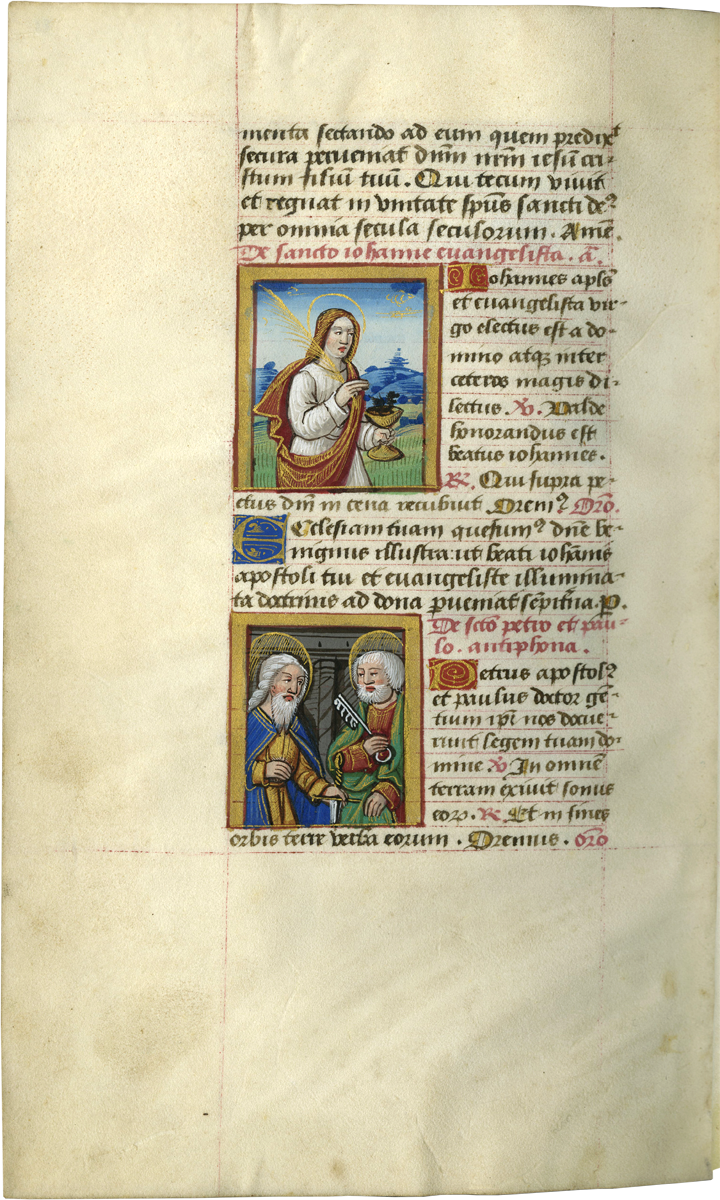 menta sectando ad eum quem predixt
secura perueniat dn̄m nr̄m iesū cri-
stum filiū tuū. Qui tecum viuit
et regnat in vnitate sp̄us sancti deꝰ
per omnia secula seculorum. Amē.
De sancto iohanne euangelista. a᷒.
Iohannes apl̄s
et euangelista vir-
go electus est a do-
mino atqꝫ inter
ceteros magis di-
lectus. ℣. Valde
honorandus est
beatus iohannes.
℟. Qui supra pe-
ctus dn̄i in cena recubuit. Oremꝰ. Or̄o.
Ecclesiam tuam quesumꝰ dn̄e be-
nignus illustra: ut beati iohānis
apostoli tui et euangeliste illumina-
ta doctrinis ad dona ꝑueniat sēpit̄na. P.
De sct̄o petro et pau-
lo. antiphona.
Petrus apostolꝰ
et paulus doctor gē-
tium ip̄i nos docue-
runt legem tuam do-
mine ℣. In omnē
terram exiuit sonus
eoꝝ. ℟. Et in fines
orbis terre verba eorum. Oremus. or̄o